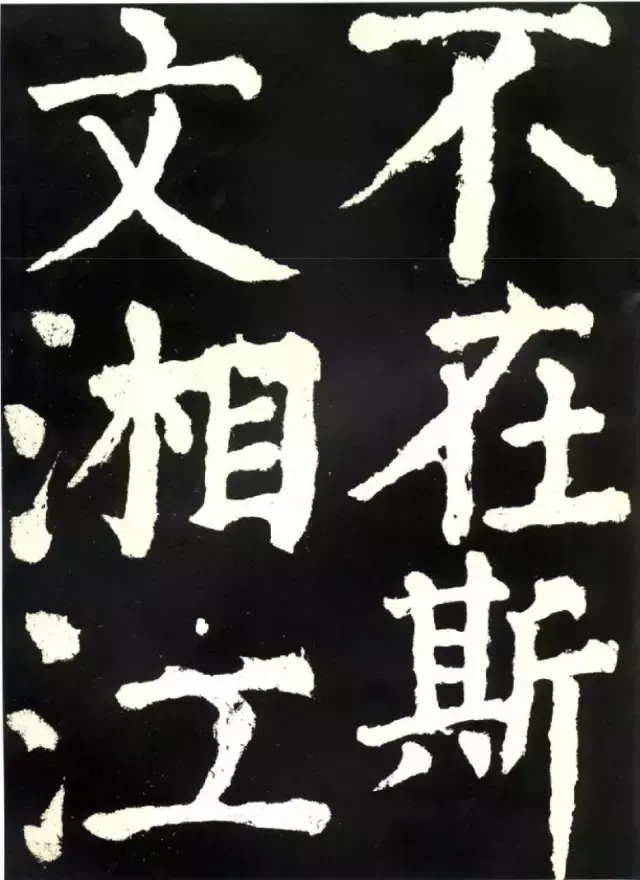 不在斯
文湘江